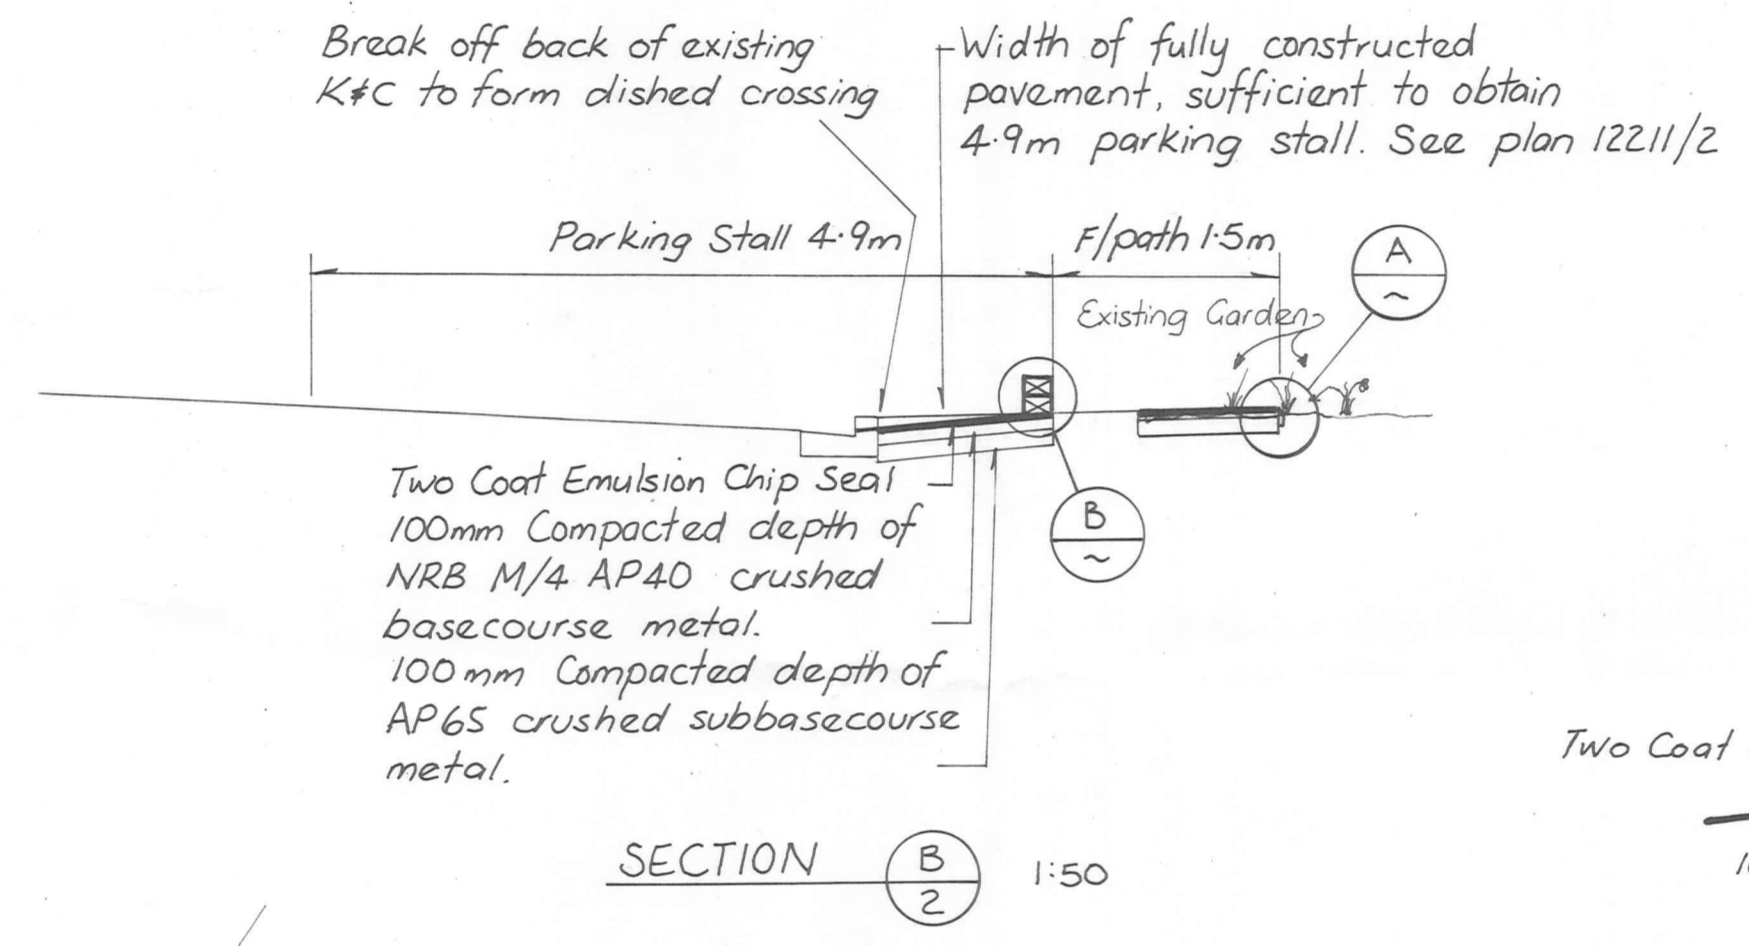 Break off back of existing
K&C to form dished crossing
Width of fully constructed
pavement, sufficient to obtain
4.9m parking stall. See plan 12211/2
Parking Stall 4.9m
F/path 1.5m
A
~
Existing Garden
Two Coat Emulsion Chip Seal
100mm Compacted depth of
NRB M/4 AP40 crushed
basecourse metal.
100mm Compacted depth of
AP65 crushed subbasecourse
metal.
B
~
Two Coat
SECTION B 1:50
2